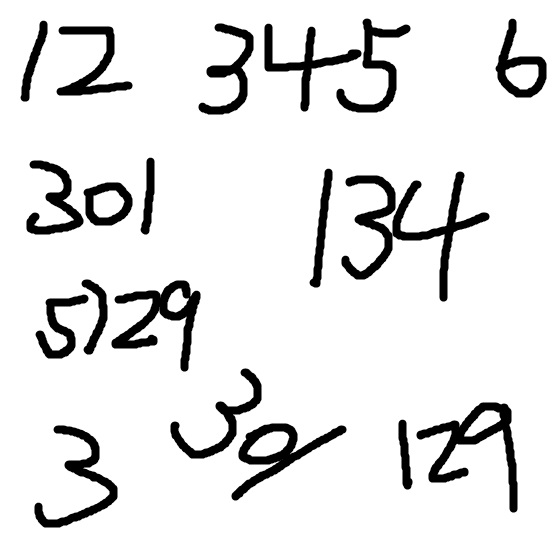 12 345 6
301 134
5)29
3 301 129